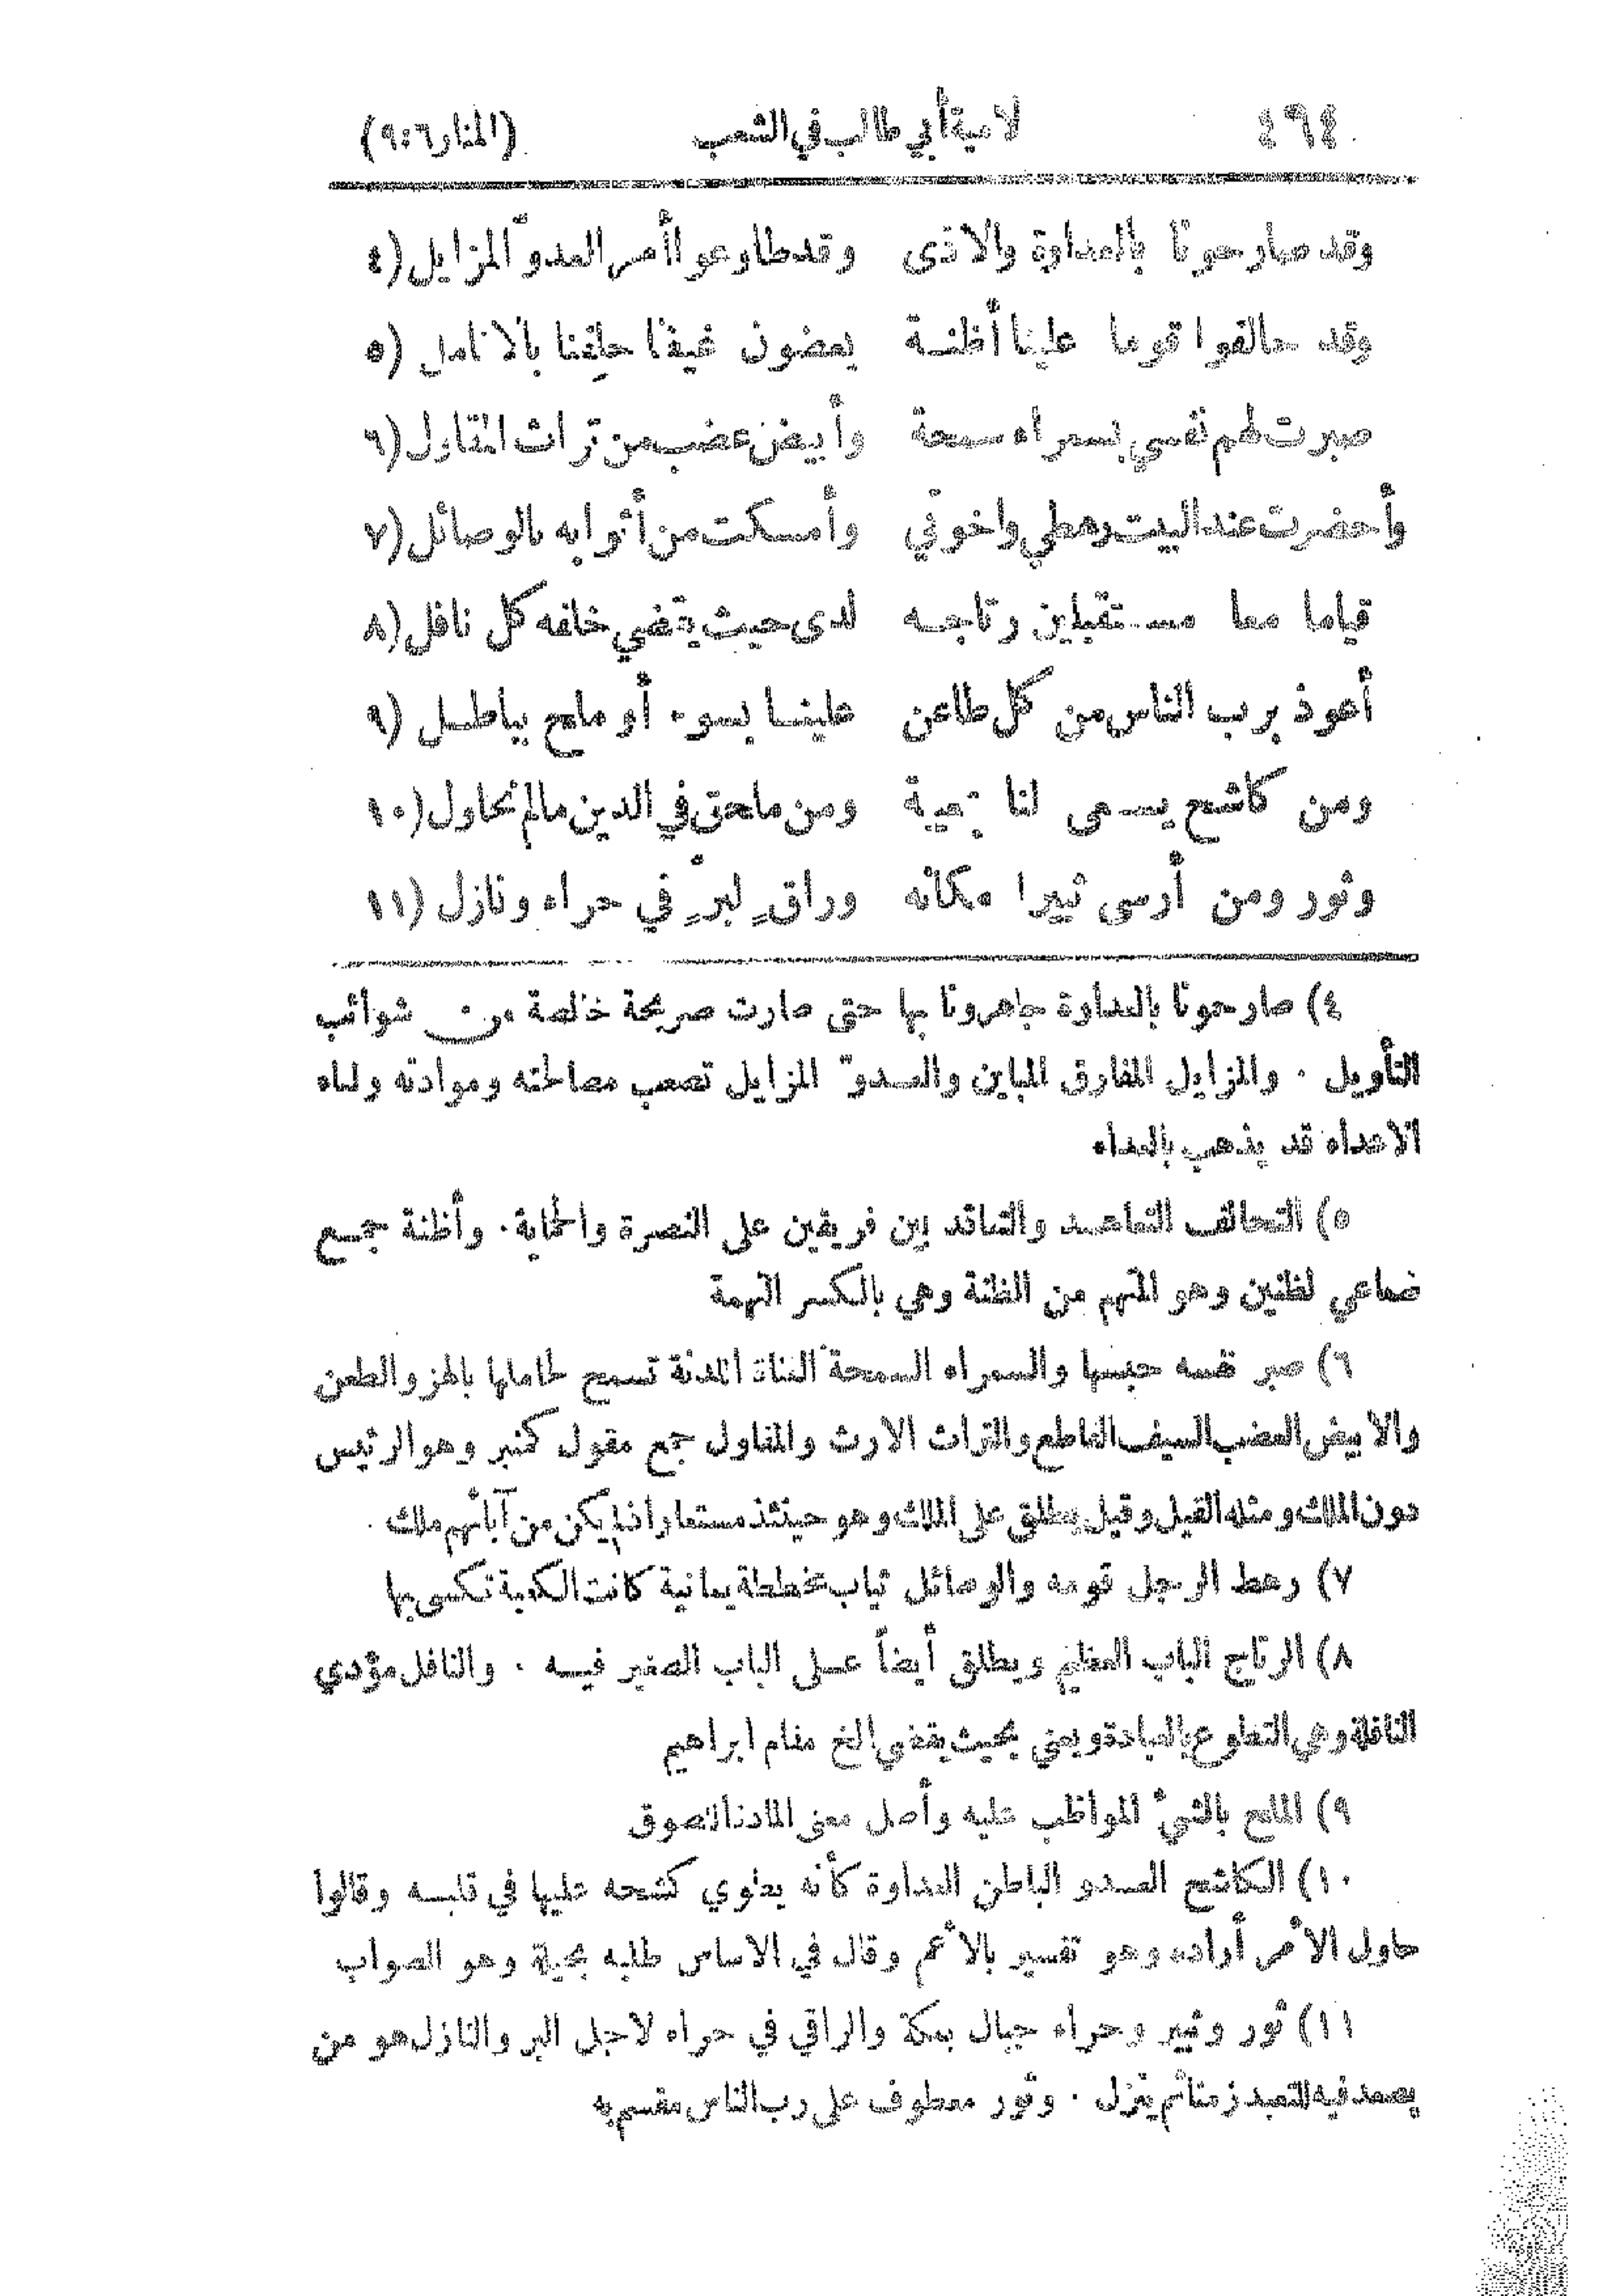 ٤٩٤ لامية أبي طالب في الشعب (المنار ٩:٦)
وقد صارحونا بالعداوة والاذى وقد طاوعوا أمر العدوّ المزايل (٤
وقد حالفوا قوما علينا أظنة يعضون غيظا خلفنا بالانامل (٥
صبرت لهم نفسي بسمراء سمحة وأبيض عضب من تراث المقاول (٦
وأحضرت عند البيت رهطي واخوتي وأمسكت من أثوابه بالوصائل (٧
قياما معا مستقبلين رتاجه لدى حيث يقضي خلفه كل نافل (٨
أعوذ برب الناس من كل طاعن علينا بسوء أو ملح بباطل (٩
ومن كاشح يسعى لنا بعيبة ومن ملحق في الدين مالم نحاول (١٠
وثور ومن أرسى ثبيرا مكانه وراقٍ لبرٍّ في حراء ونازل (١١
٤) صارحونا بالعداوة جاهرونا بها حتى صارت صريحة خالصة من شوائب
التأويل . والمزايل المفارق المباين والعدوّ المزايل تصعب مصالحته وموادته ولقاء
الاعداء قد يذهب بالعداء
٥) التحالف التعاهد والتعاقد بين فريقين على النصرة والحماية . وأظنة جمع
سماعي لظنين وهو المتهم من الظنة وهي بالكسر التهمة
٦) صبر نفسه حبسها والسمراء السمحة القناة اللدنة تسمح لحاملها بالهز والطعن
والابيض العضب السيف القاطع والتراث الارث والمقاول جمع مقول كمنبر وهو الرئيس
دون الملك ومثله القيل وقيل يطلق على الملك وهو حينئذ مستعار اذ لم يكن من آبائهم ملك .
٧) رهط الرجل قومه والوصائل ثياب مخططة يمانية كانت الكعبة تكسى بها
٨) الرتاج الباب العظيم ويطلق أيضاً على الباب الصغير فيه . والنافل مؤدي
النافلة وهي التطوع بالعبادة ويعني بحيث يقضي الخ مقام ابراهيم
٩) الملح بالشيء المواظب عليه وأصل معنى المادة اللصوق
١٠) الكاشح العدو الباطن العداوة كأنه يطوي كشحه عليها في قلبه وقالوا
حاول الأمر أراده وهو تفسير بالأعم وقال في الاساس طلبه بحيلة وهو الصواب
١١) ثور وثبير وحراء جبال بمكة والراقي في حراء لاجل البر والنازل هو من
يصعد فيه للتعبد زمنا ثم ينزل . وثور معطوف على رب الناس مقسم به